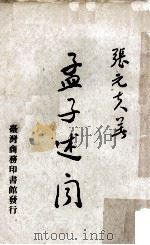 張元夫著
孟子述聞
臺灣商務印書館發行